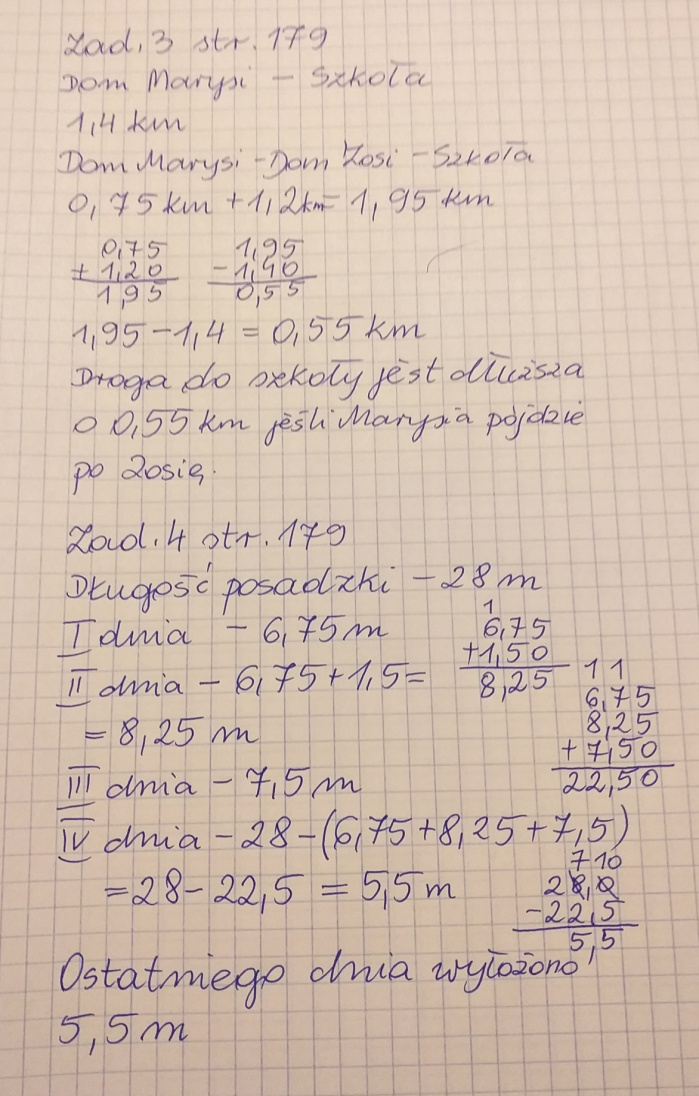 Zad. 3 str. 179
Dom Marysi - Szkoła
1,4 km
Dom Marysi - Dom Zosi - Szkoła
0,75 km + 1,2 km = 1,95 km
0,75
+ 1,20
1,95
1,95
- 1,40
0,55
1,95 - 1,4 = 0,55 km
Droga do szkoły jest dłuższa
o 0,55 km jeśli Marysia pójdzie
po Zosię.
Zad. 4 str. 179
Długość posadzki - 28 m
I dnia - 6,75 m
1
6,75
+1,50
8,25
II dnia - 6,75 + 1,5 =
= 8,25 m
11
6,75
8,25
+ 7,50
22,50
III dnia - 7,5 m
IV dnia - 28 - (6,75 + 8,25 + 7,5)
= 28 - 22,5 = 5,5 m
7 10
28,0
- 22,5
5,5
Ostatniego dnia wyłożono
5,5 m